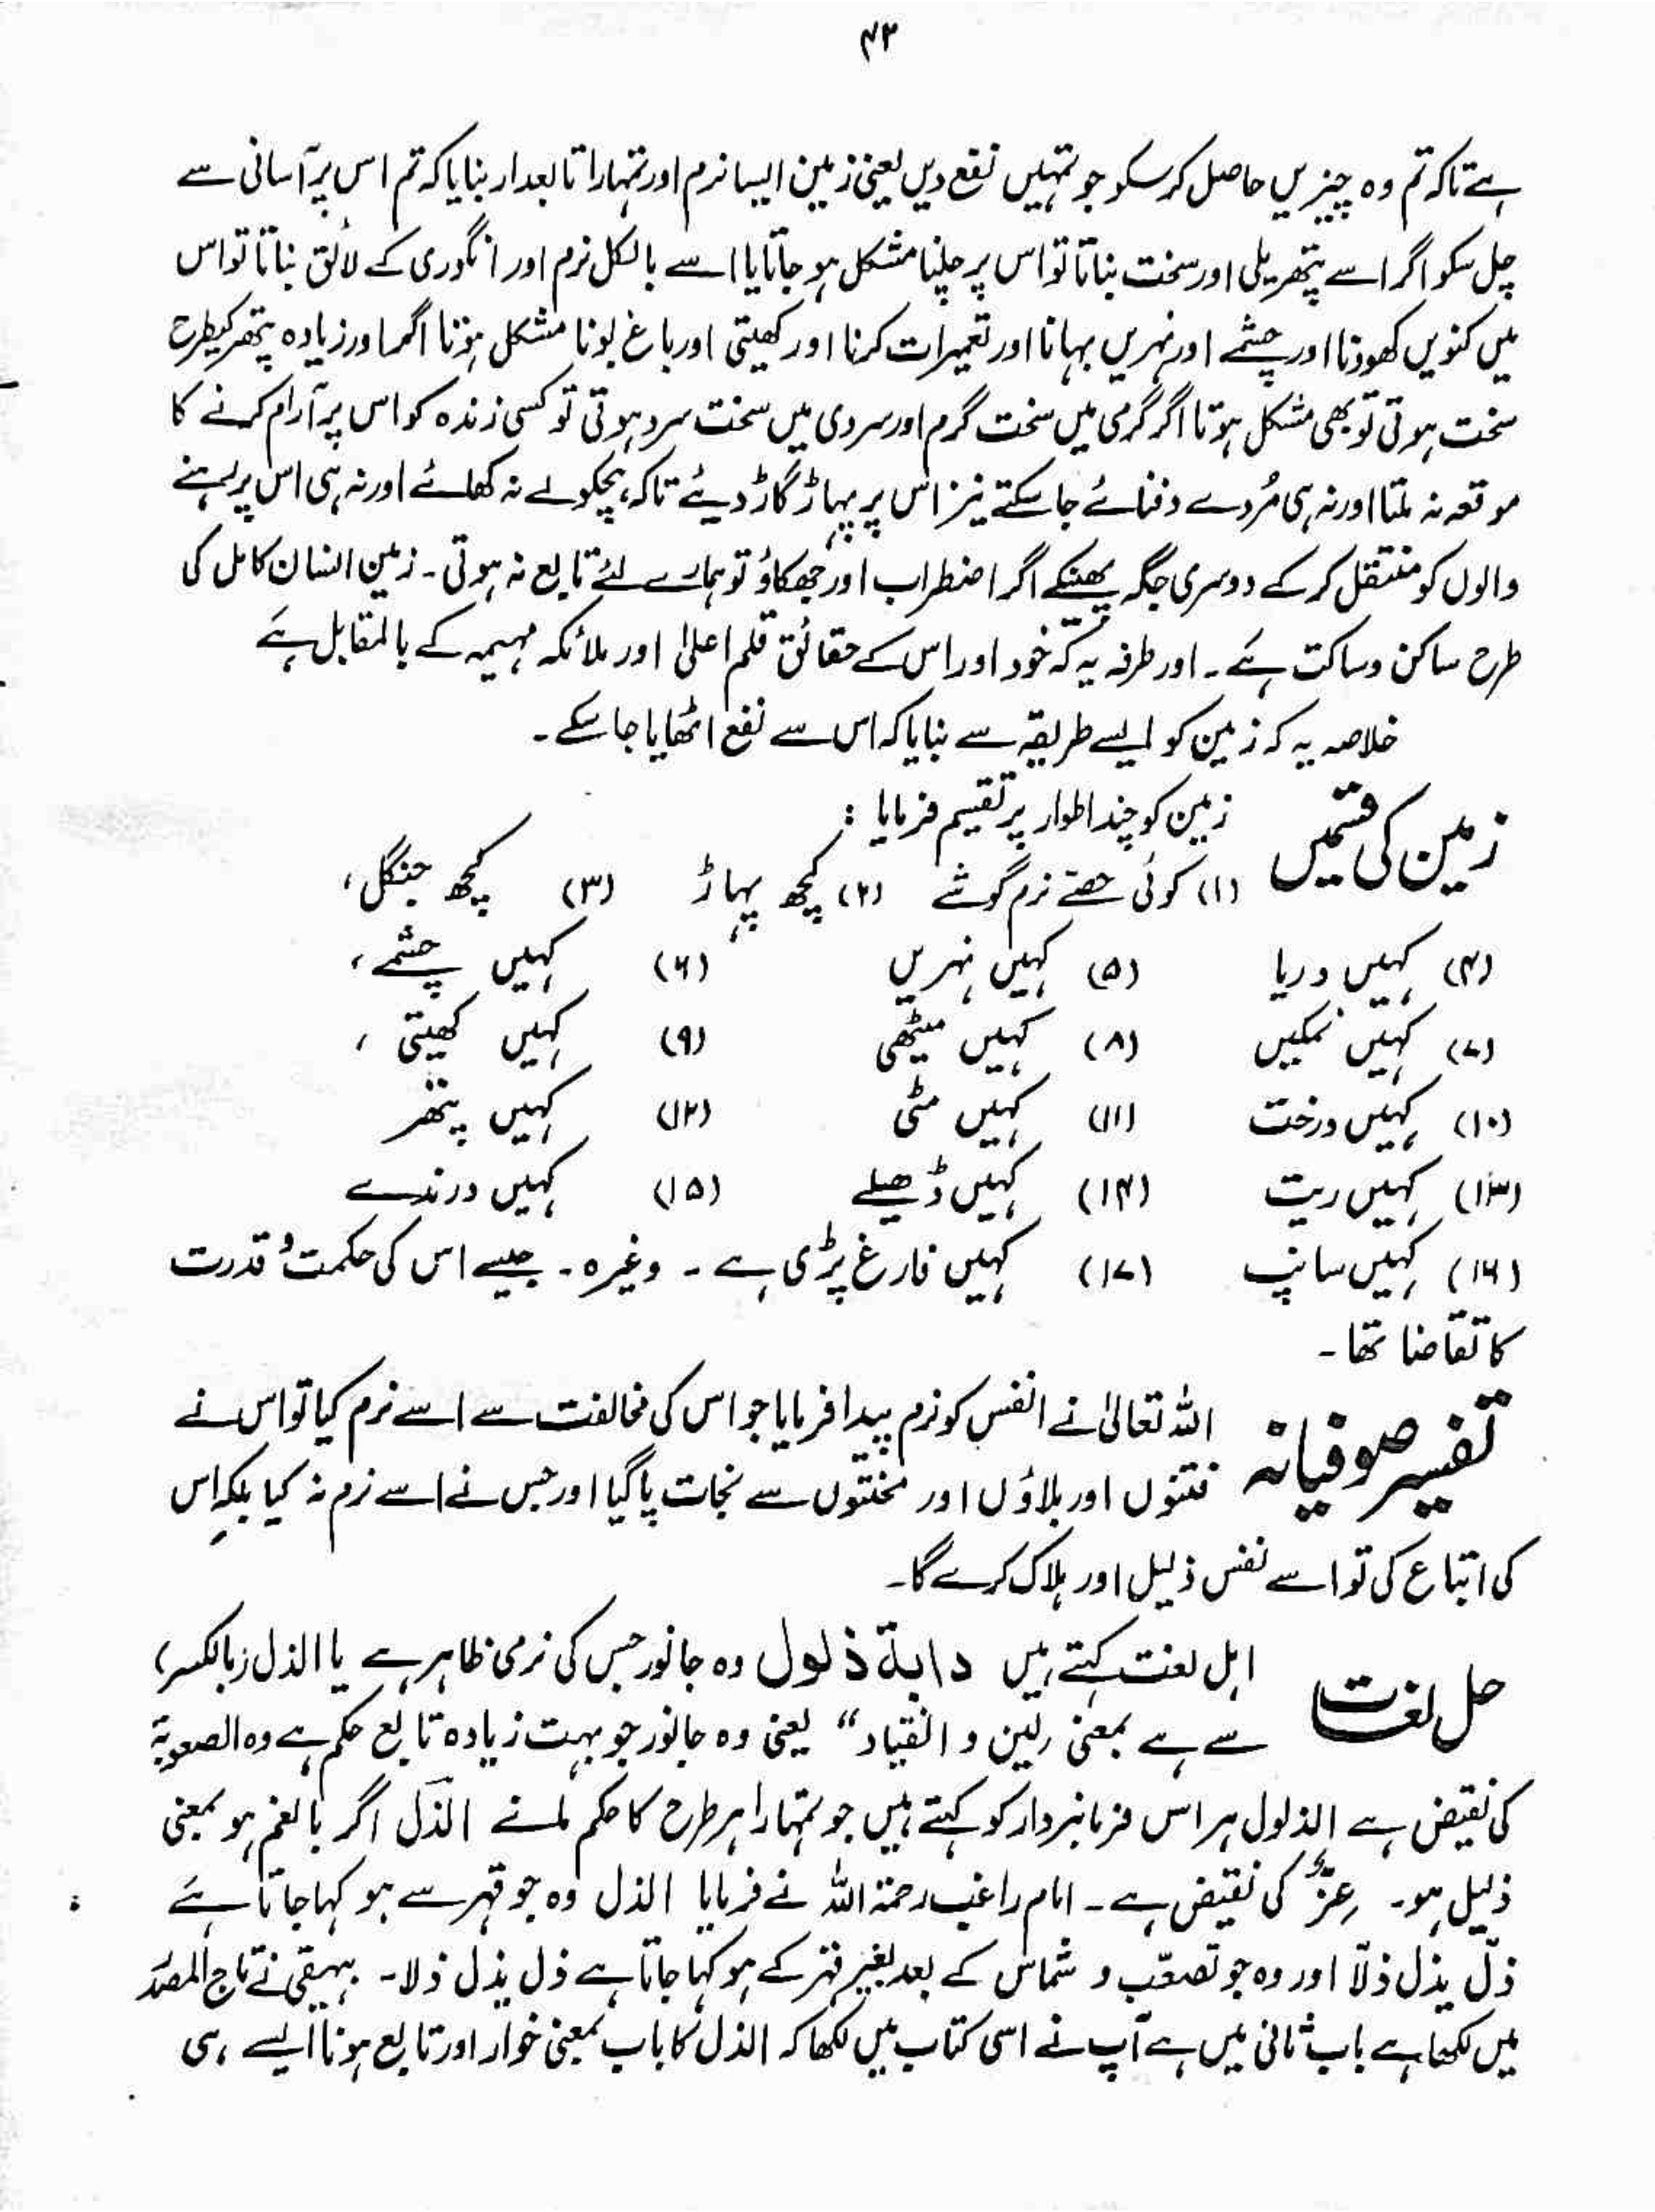 ۴۲
ہے تاکہ تم وہ چیزیں حاصل کر سکو جو تمہیں نفع دیں یعنی زمین ایسا نرم اور تمہارا تابعدار بنایا کہ تم اس پر آسانی سے
چل سکو اگر اسے پتھریلی اور سخت بناتا تو اس پر چلنا مشکل ہو جاتا یا اسے بالکل نرم اور انگوری کے لائق بناتا تو اس
میں کنویں کھودنا اور چشمے اور نہریں بہانا اور تعمیرات کرنا اور کھیتی اور باغ بونا مشکل ہوتا اگر اور زیادہ پتھر کیطرح
سخت ہوتی تو بھی مشکل ہوتا اگر گرمی میں سخت گرم اور سردی میں سخت سرد ہوتی تو کسی زندہ کو اس پر آرام کرنے کا
موقعہ نہ ملتا اور نہ ہی مُردے دفنائے جا سکتے نیز اس پر پہاڑ گاڑ دیئے تاکہ ہچکولے نہ کھائے اور نہ ہی اس پر رہنے
والوں کو منتقل کر کے دوسری جگہ پھینکے اگر اضطراب اور جھکاؤ تو ہمارے لئے تابع نہ ہوتی۔ زمین انسان کامل کی
طرح ساکن و ساکت ہے۔ اور طرفہ یہ کہ خود اور اس کے حقائق قلم اعلیٰ اور ملائکہ مہیمہ کے بالمقابل ہے
خلاصہ یہ کہ زمین کو ایسے طریقہ سے بنایا کہ اس سے نفع اٹھایا جا سکے۔
زمین کی قسمیں زمین کو چند اطوار پر تقسیم فرمایا :
(۱) کوئی حصے نرم گوشے (۲) کچھ پہاڑ (۳) کچھ جنگل،
(۴) کہیں دریا (۵) کہیں نہریں (۶) کہیں چشمے،
(۷) کہیں نمکیں (۸) کہیں میٹھی (۹) کہیں کھیتی ،
(۱۰) کہیں درخت (۱۱) کہیں مٹی (۱۲) کہیں پتھر
(۱۳) کہیں ریت (۱۴) کہیں ڈھیلے (۱۵) کہیں درندے
(۱۶) کہیں سانپ (۱۷) کہیں فارغ پڑی ہے ۔ وغیرہ۔ جیسے اس کی حکمت و قدرت
کا تقاضا تھا۔
تفسیر صوفیانہ اللہ تعالیٰ نے انفس کو نرم پیدا فرمایا جو اس کی مخالفت سے اسے نرم کیا تو اس نے
فتنوں اور بلاؤں اور محنتوں سے نجات پا گیا اور جس نے اسے نرم نہ کیا بلکہ اس
کی اتباع کی تو اسے نفس ذلیل اور ہلاک کرے گا۔
حل لغات اہل لغت کہتے ہیں دابة ذلول وہ جانور جس کی نرمی ظاہر ہے یا الذل (بالکسر)
سے ہے بمعنی (لین و انقیاد“ یعنی وہ جانور جو بہت زیادہ تابع حکم ہے وہ الصعوبۃ
کی نقیض ہے الذلول ہر اس فرمانبردار کو کہتے ہیں جو تمہارا ہر طرح کا حکم مانے الذل اگر بالضم ہو بمعنی
ذلیل ہو۔ عِزٌّ کی نقیض ہے۔ امام راغب رحمۃ اللہ نے فرمایا الذل وہ جو قہر سے ہو کہا جاتا ہے
ذلّ یذل ذلّا اور وہ جو تصعّب و شماس کے بعد بغیر قہر کے ہو کہا جاتا ہے ذل یذل ذلا۔ بیہقی نے تاج المصادر
میں لکھا ہے باب ثانی میں ہے آپ نے اسی کتاب میں لکھا کہ الذل کا باب بمعنی خوار اور تابع ہونا ایسے ہی